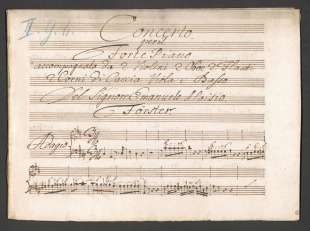 II. 9. b.
Concerto
per il
Forte Piano
accompagnato da 2 Violini 2 Oboe 2 Flauti
2 Corni di Caccia Viola e Basso
Del Signore Emanuele Aloisio
Förster
Adagio